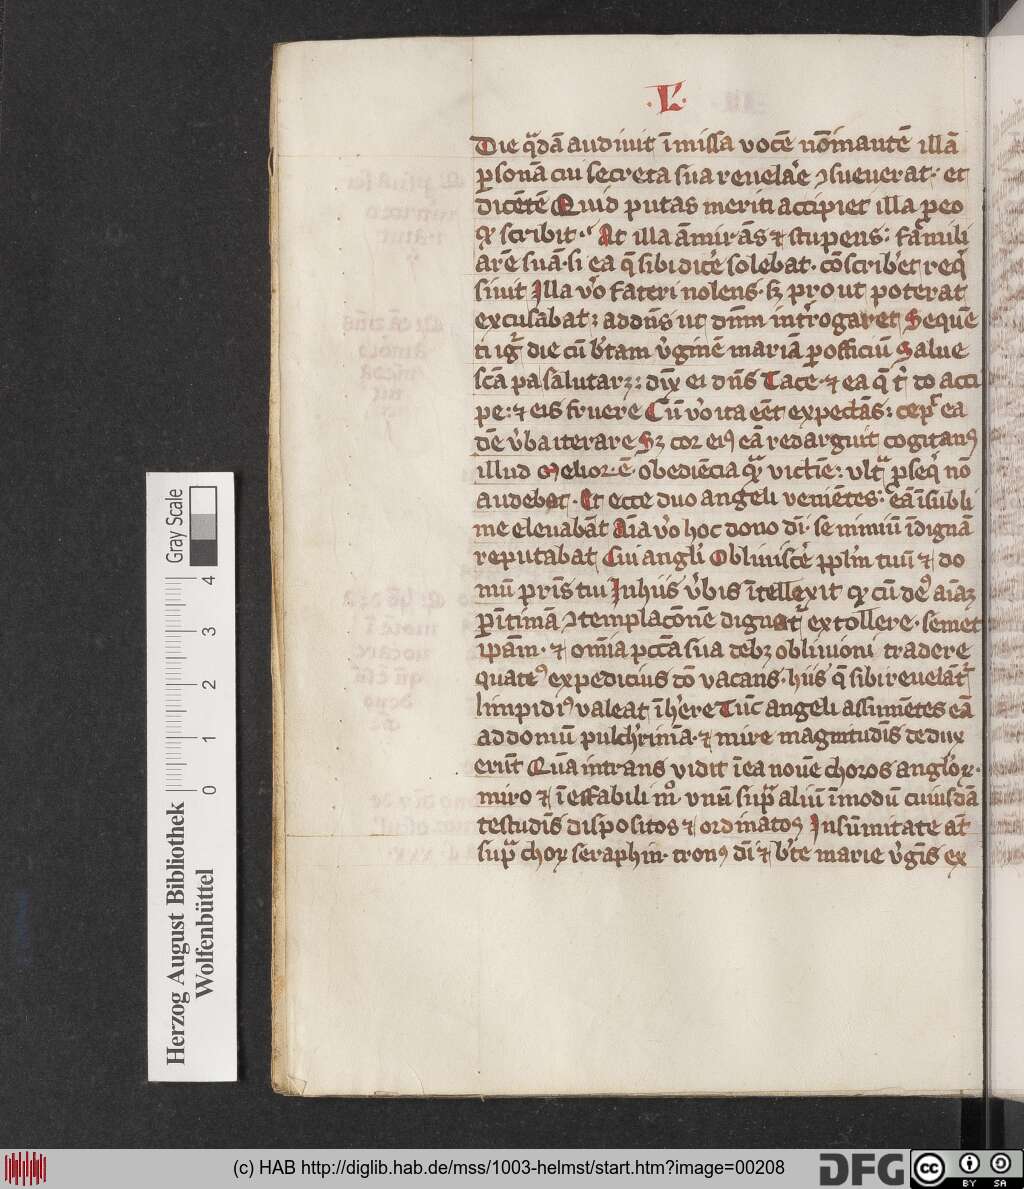 ·L·
Die q̄dā audiuit ī missa vocē noīantē illā
p̱sonā cui secreta sua reuelar̄e ꝯsueuerat· et
dicētē Quid putas meriti accipiet illa p eo
qꝫ scribit· At illa āmirās ⁊ stupens: famili
arē suā· si ea q̄ sibi dic̄e solebat· cōscrib̄et req̄
siuit Illa v̄o fateri nolens· sꝫ prout poterat
excusabat: addn̄s ut dn̄m int̄rogaret Sequē
ti igr̄ die cū b̄tam v̄ginē mariā p̱ officiū Salue
sc̄a pa salutarꝫ: dix̄ ei dn̄s Tace· ⁊ ea q̄ t̄ do acci
pe: ⁊ eis fruere Cū v̄o ita eēt expectās: cepͥ ea
dē v̄ba iterare Sꝫ cor eiꝰ eā redarguit cogitanꝰ
illud Melior· ē· obediēcia qͣꝫ victīe: vltͣ p̱seq̄ nō
audebat· Et ecce duo angeli veniētes: eā ī subli
me eleuabāt Aīa v̄o hoc dono dī· se nimiū īdignā
reputabat Cui angl̄i Obliuisc̄e ppl̄m tuū ⁊ do
mū pr̄is tui In hiis v̄bis ītellexit qꝫ cū deꝰ aīaꝫ
p̱ ītimā ꝯtemplac̄onē dignat᷑ extollere· semet
ip̄am· ⁊ om̄ia pcc̄a sua debꝫ obliuioni tradere
quatꝰ expediciꝰ dō vacans· hiis q̄ sibi reuelāt᷑
limpidiꝰ valeat īh̄ere Tūc angeli assumētes eā
ad domū pulch̄rimā· ⁊ mire magnitudīs dedux
erūt Quā intrans vidit ī ea nouē choros anglōꝝ·
miro ⁊ īeffabili m̊· vnū sup̄ aliū ī modū cuiusdā
testudīs dispositos ⁊ ordinatoꝰ In sūmitate āt
sup̄ choꝝ seraphin· tronꝰ dī ⁊ b̄te marie v̄gīs ex
Herzog August Bibliothek
Wolfenbüttel
0 1 2 3 4
Gray Scale
(c) HAB http://diglib.hab.de/mss/1003-helmst/start.htm?image=00208
DFG
cc BY SA